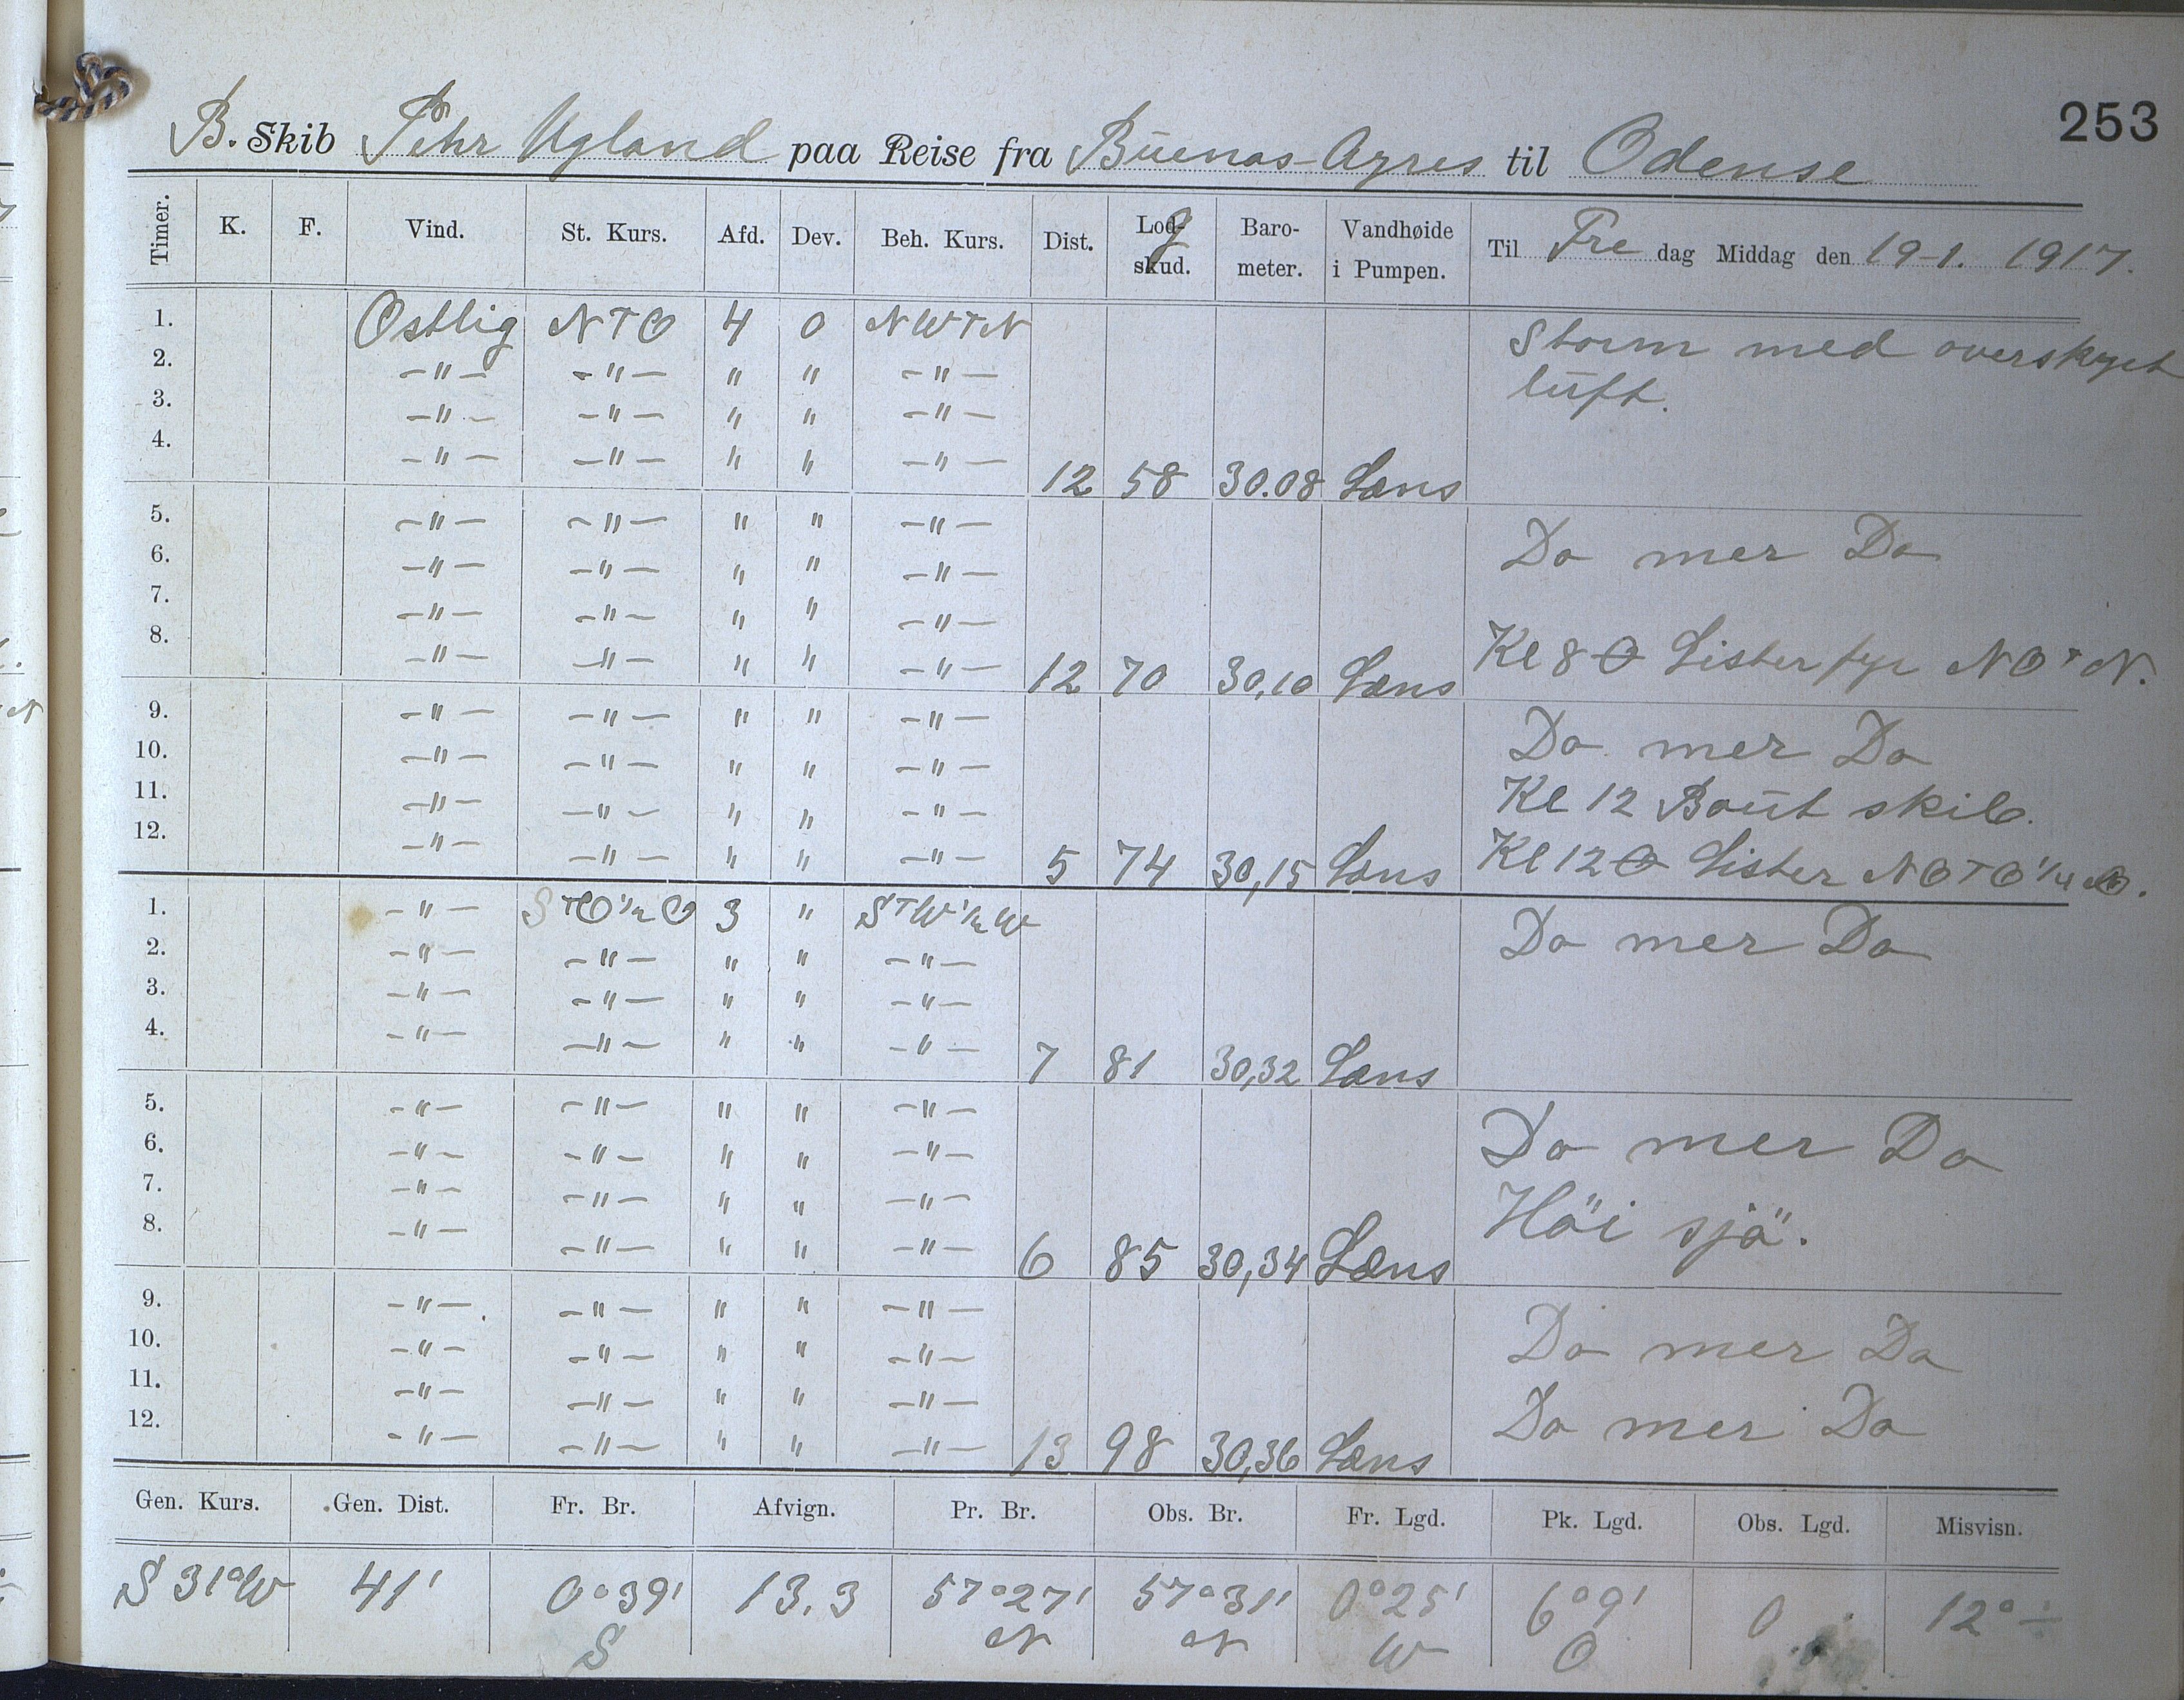 253
B. Skib Pehr Ugland paa Reise fra Büenos-Ayres til Odense
Timer. K. F. Vind. St. Kurs. Afd. Dev. Beh. Kurs. Dist. Log- skud. Baro- meter. Vandhøide i Pumpen. Til Fre dag Middag den 19-1. 1917.
1. Ostlig NTO 4 0 NWTN Storm med overskyet
2. -"- -"- " " -"- lüft.
3. -"- -"- " " -"-
4. -"- -"- " " -"- 12 58 30.08 Læns
5. -"- -"- " " -"- Do mer Do
6. -"- -"- " " -"-
7. -"- -"- " " -"-
8. -"- -"- " " -"- 12 70 30,10 Læns Kl 8 Lister fyr NOTN.
9. -"- -"- " " -"- Do mer Do
10. -"- -"- " " -"- Kl 12 Boüt skib.
11. -"- -"- " " -"-
12. -"- -"- " " -"- 5 74 30,15 Læns Kl 12 Lister NOTO 1/4
1. -"- STO 1/2 O 3 " STW 1/2 W Do mer Do
2. -"- -"- " " -"-
3. -"- -"- " " -"-
4. -"- -"- " " -"- 7 81 30,32 Læns
5. -"- -"- " " -"- Do mer Do
6. -"- -"- " " -"-
7. -"- -"- " " -"- Höi sjö.
8. -"- -"- " " -"- 6 85 30,34 Læns
9. -"- -"- " " -"- Do mer Do
10. -"- -"- " " -"-
11. -"- -"- " " -"- Do mer Do
12. -"- -"- " " -"- 13 98 30,36 Læns
Gen. Kurs. Gen. Dist. Fr. Br. Afvign. Pr. Br. Obs. Br. Fr. Lgd. Pk. Lgd. Obs. Lgd. Misvisn.
S 31° W 41' 0°39' 13.3 57°27' 57°31' 0°25' 6°9' 0 12° ÷
S N N W O